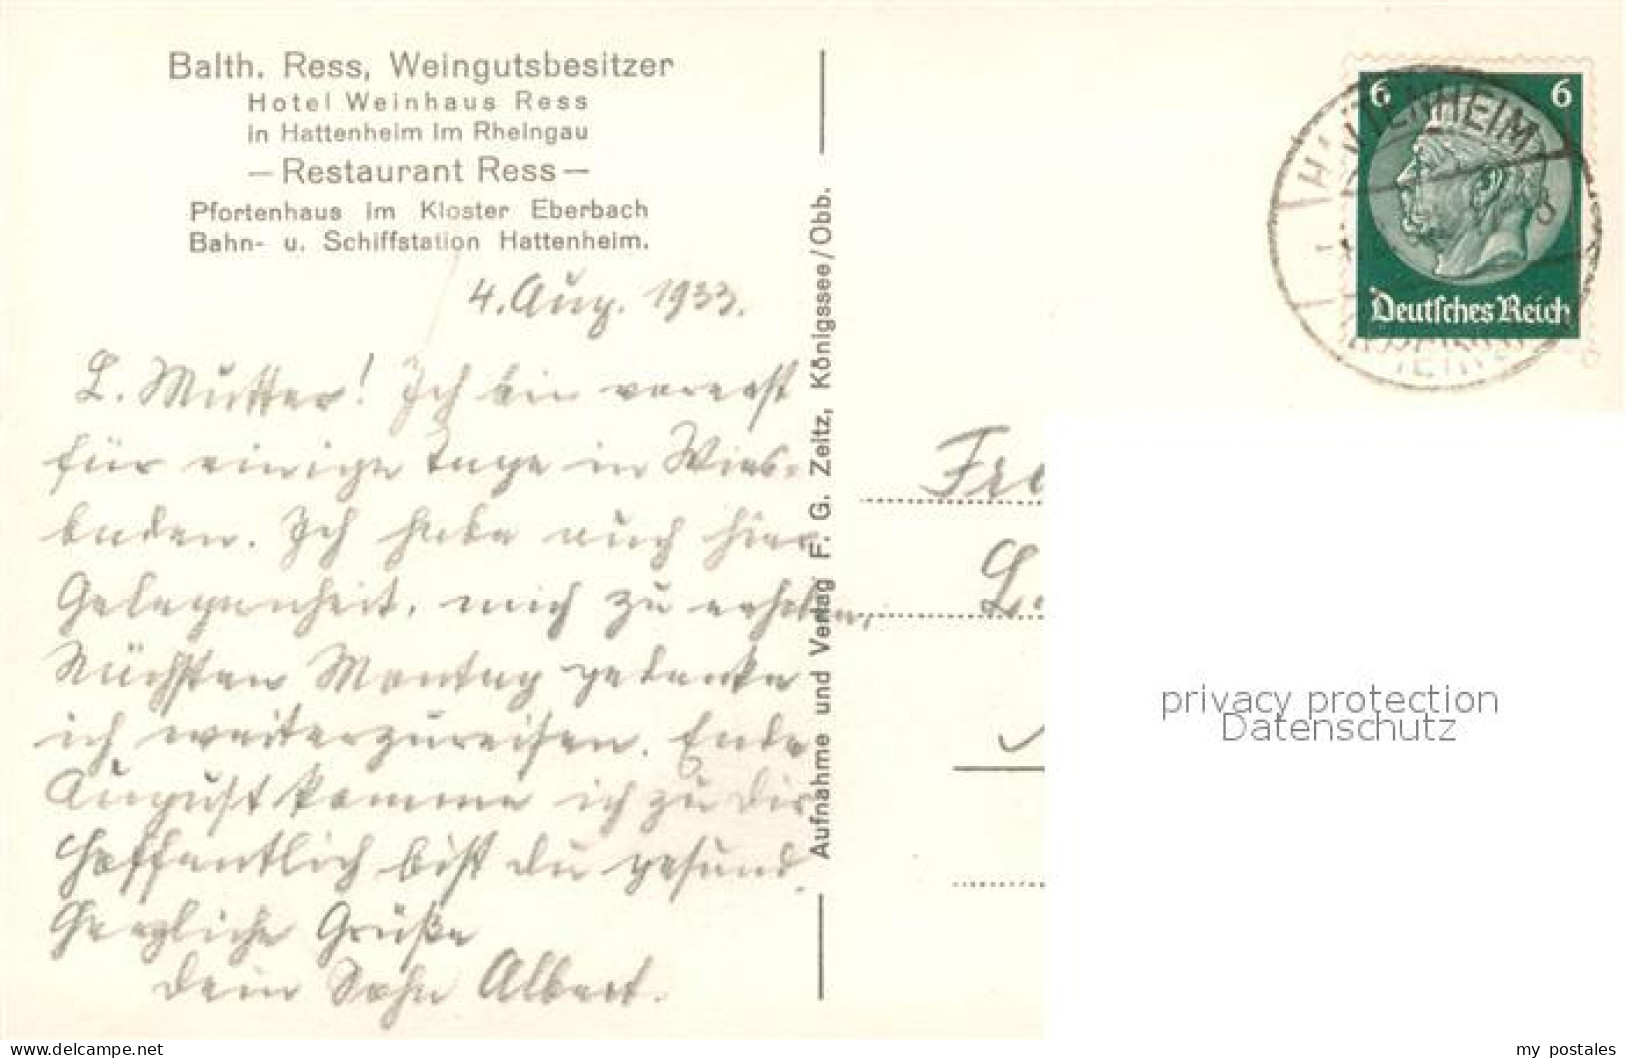 Balth. Ress, Weingutsbesitzer
Hotel Weinhaus Ress
in Hattenheim im Rheingau
— Restaurant Ress —
Pfortenhaus im Kloster Eberbach
Bahn- u. Schiffstation Hattenheim.
4. Aug. 1933.
L. Mutter! Ich bin vorerst
für einige Tage in Wies-
baden. Ich habe auch hier
Gelegenheit, mich zu erholen.
Nächsten Montag gedenke
ich weiterzureisen. Ende
August komme ich zu Dir
Hoffentlich bist du gesund.
Herzliche Grüße
Dein Sohn Albert.
Aufnahme und Verlag F. G. Zeitz, Königssee/Obb.
6 6
Deutsches Reich
HATTENHEIM
privacy protection
Datenschutz
www.delcampe.net
my_postales